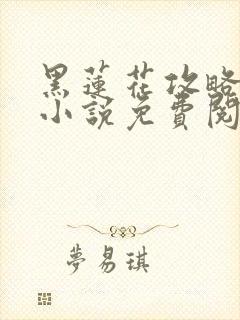 黑蓮花攻略
小說免費閱
夢易琪